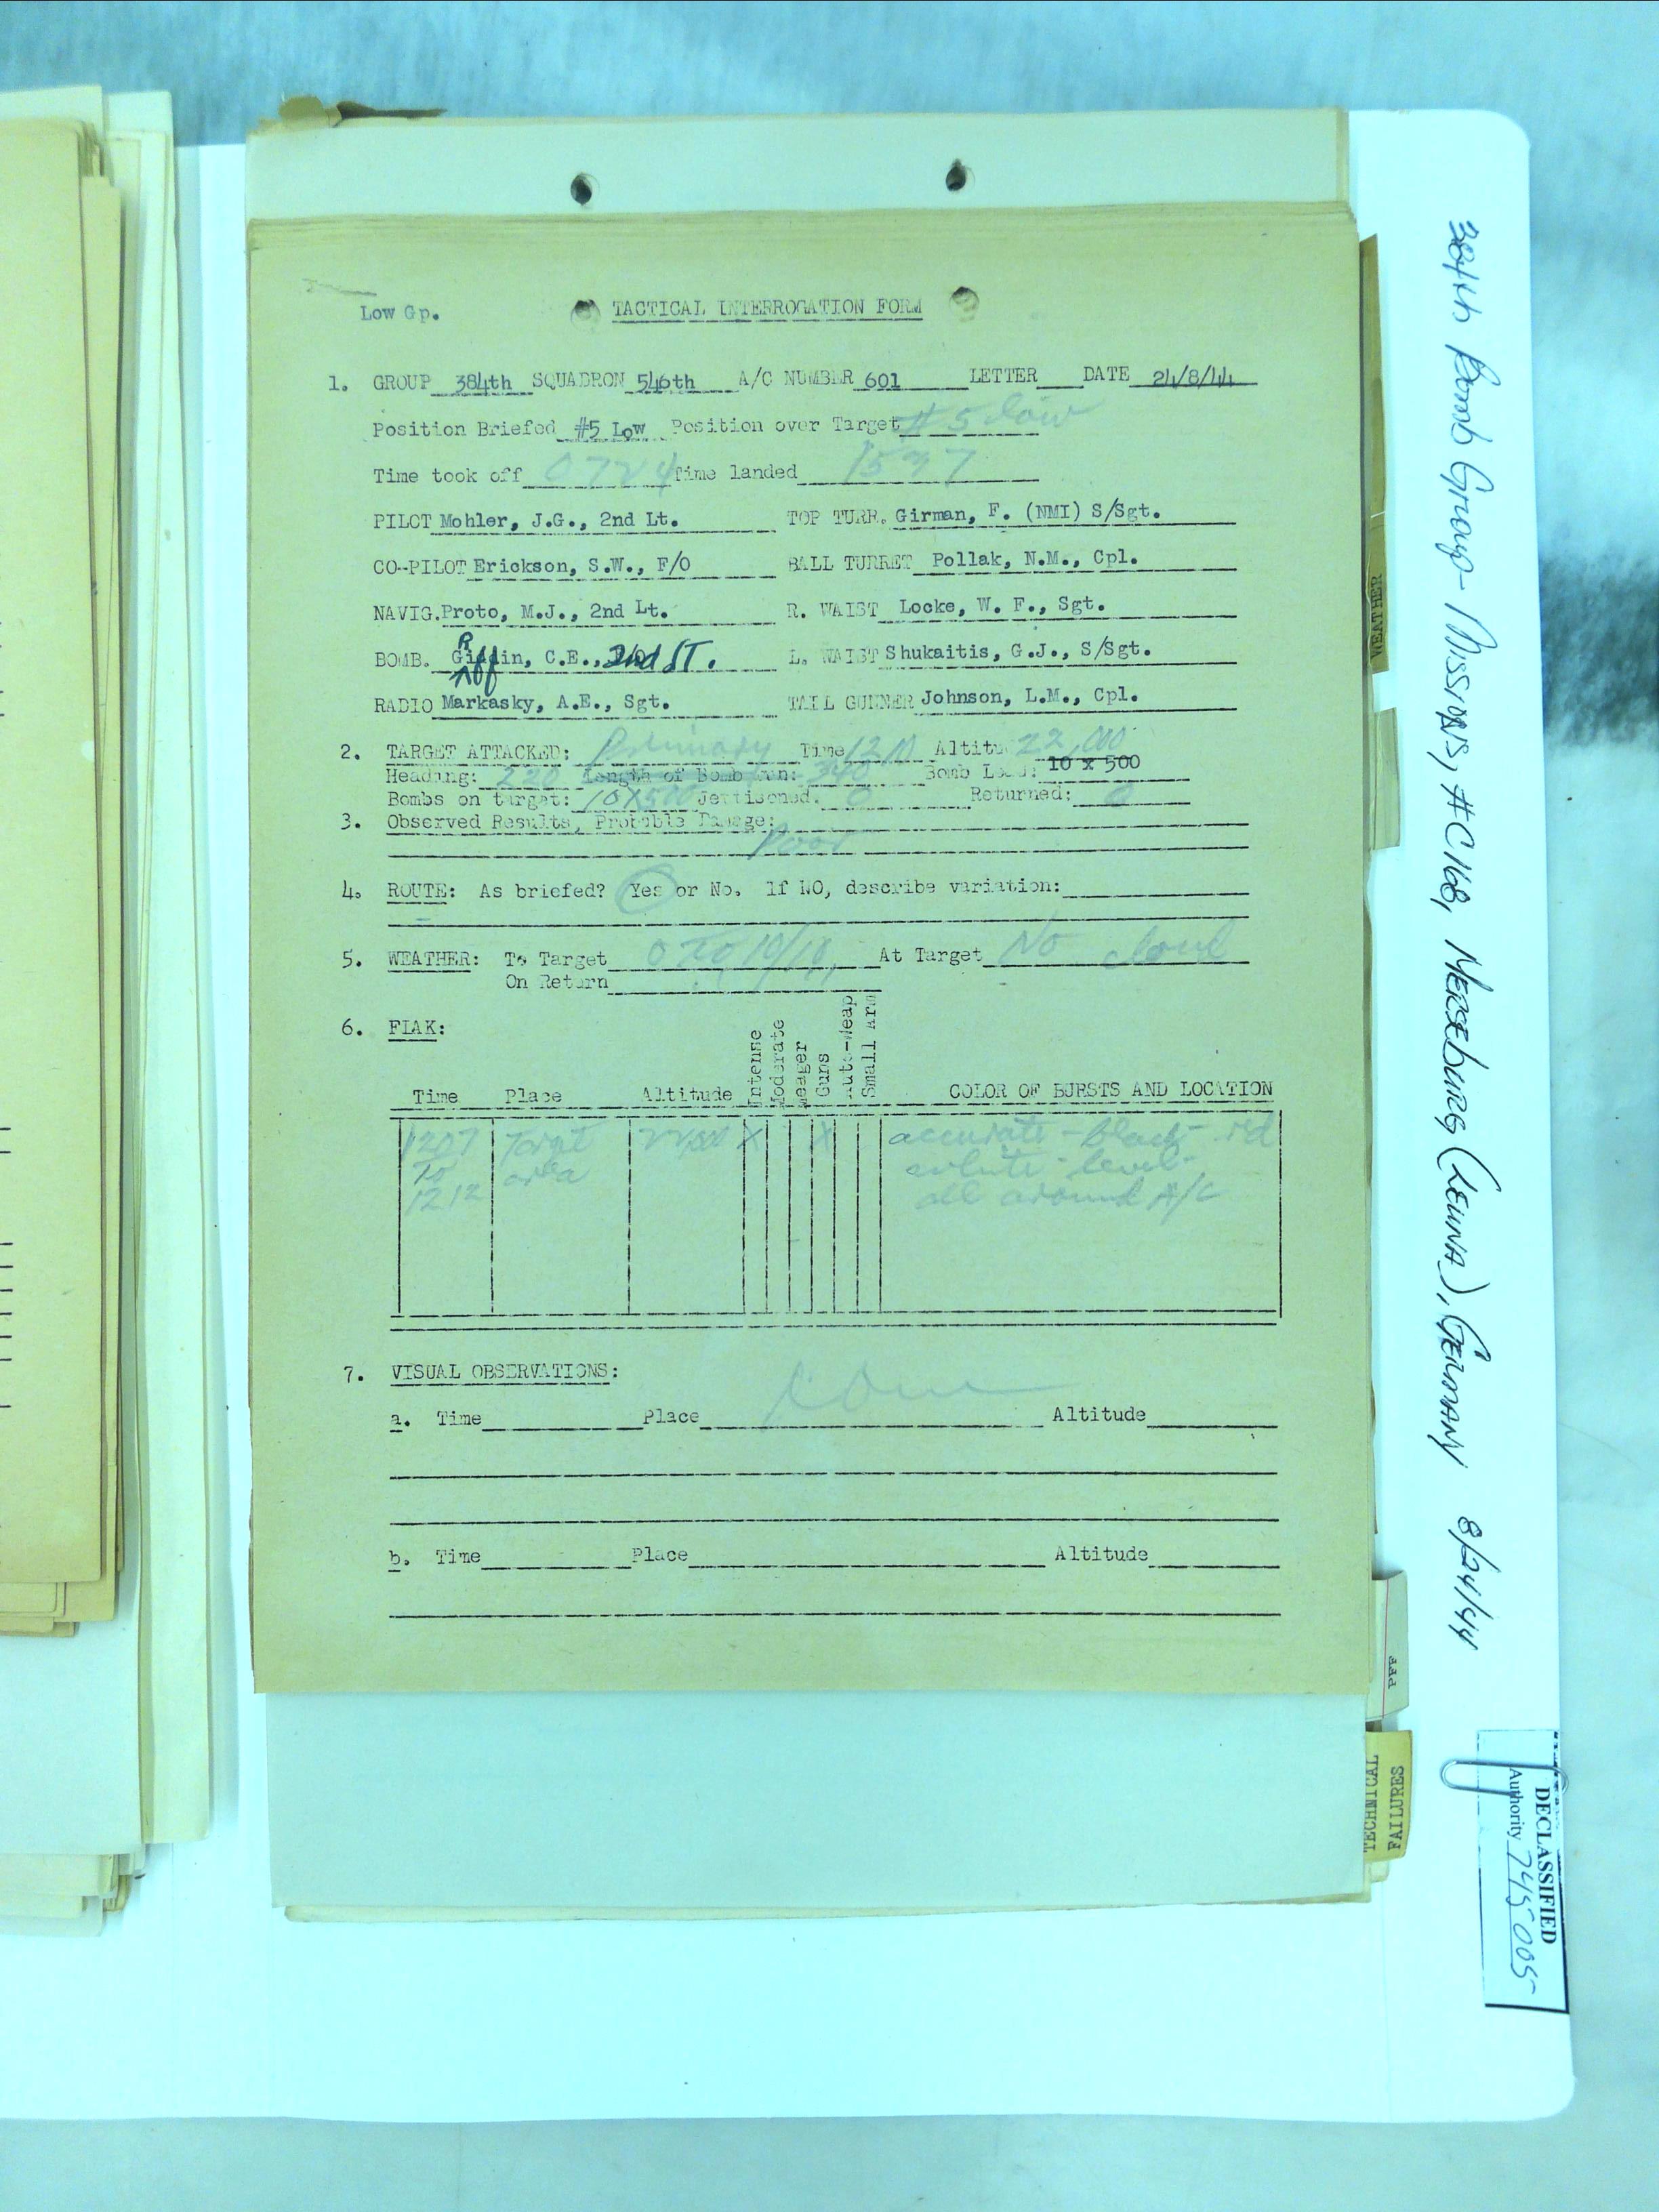 Low Gp.
TACTICAL INTERROGATION FORM
1. GROUP 384th SQUADRON 546th A/C NUMBER 601 LETTER DATE 24/8/44
Position Briefed #5 Low Position over Target #5 low
Time took off 0724 Time landed 1537
PILOT Mohler, J.G., 2nd Lt. TOP TURR. Girman, F. (NMI) S/Sgt.
CO-PILOT Erickson, S.W., F/O BALL TURRET Pollak, N.M., Cpl.
NAVIG. Proto, M.J., 2nd Lt. R. WAIST Locke, W. F., Sgt.
BOMB. C.E., 2nd LT. L. WAIST Shukaitis, G.J., S/Sgt.
RADIO Markasky, A.E., Sgt. TAIL GUNNER Johnson, L.M., Cpl.
2. TARGET ATTACKED: Primary Time 1210 Altitude 22,000
Heading: 220 Length of Bomb Run: 340 Bomb Load: 10 x 500
Bombs on target: 10x500 Jettisoned: 0 Returned: 0
3. Observed Results, Probable Damage:
Poor
4. ROUTE: As briefed? Yes or No. If NO, describe variation:
5. WEATHER: To Target 0 to 10/10, At Target No cloud
On Return
6. FLAK:
Time Place Altitude Intense Moderate Meager Guns Auto-Weap Small Arm COLOR OF BURSTS AND LOCATION
1207 Target X X accurate - black - rd
To area white - level -
1212 all around A/C
7. VISUAL OBSERVATIONS:
a. Time Place Altitude
b. Time Place Altitude
384th Bomb Group - Missions, #C168, MERSEBURG (LEUNA), GERMANY 8/24/44
WEATHER
PFF
TECHNICAL
FAILURES
DECLASSIFIED
Authority 745005